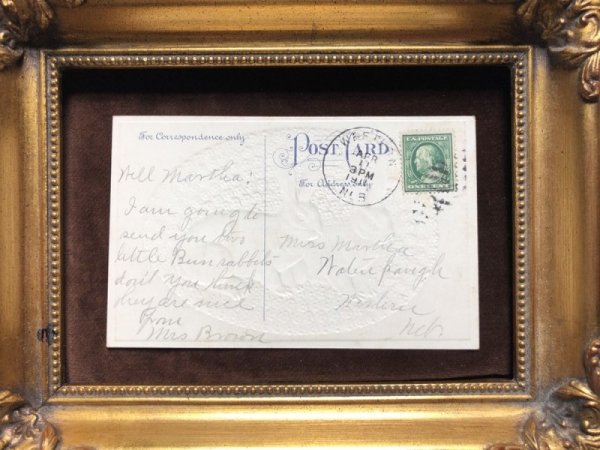 For Correspondence only
POST CARD
For Address only
WESTERN
APR
11
3 PM
NEB
U.S. POSTAGE
ONE CENT
Well Martha:
I am going to
send you two
little Bun rabbits
don't you think
they are nice
from
Mrs Brown
Miss Martha
Waterbaugh
Western
Neb.